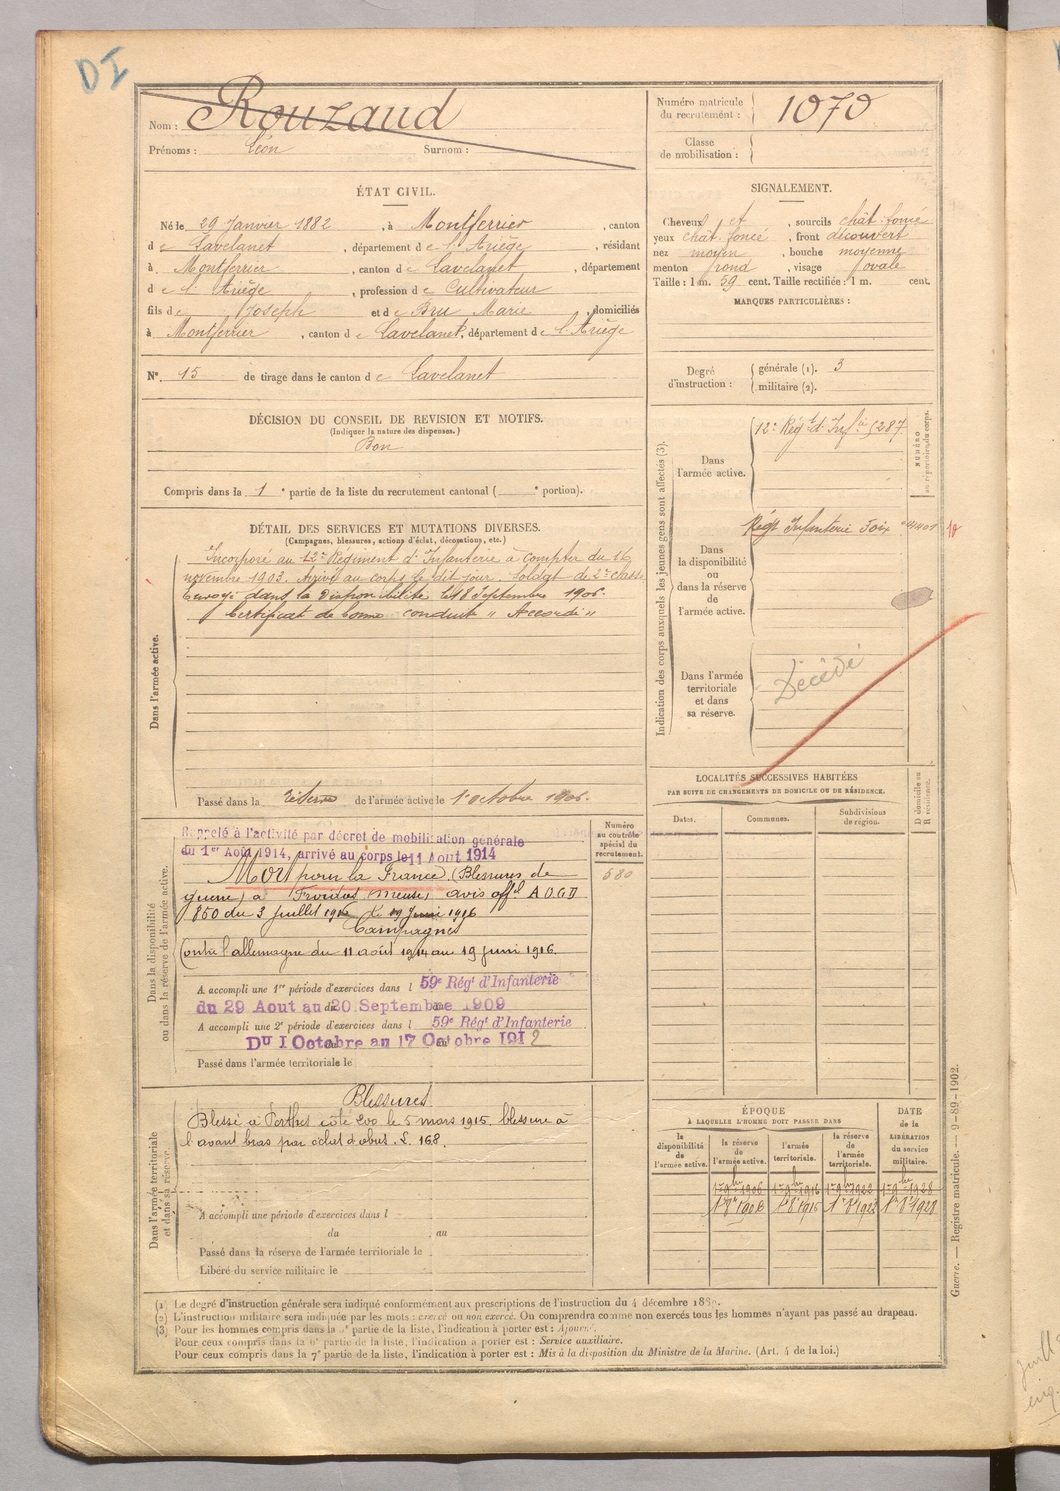 DI
Nom : Rouzaud
Prénoms : Léon Surnom :
Numéro matricule du recrutement : 1070
Classe de mobilisation :
ÉTAT CIVIL.
Né le 29 Janvier 1882, à Montferrier, canton
de Lavelanet, département de l'Ariège, résidant
à Montferrier, canton de Lavelanet, département
de l'Ariège, profession de Cultivateur
fils de Joseph et de Bru Marie, domiciliés
à Montferrier, canton de Lavelanet, département de l'Ariège
N° 15 de tirage dans le canton de Lavelanet
SIGNALEMENT.
Cheveux et, sourcils chât. foncé
yeux chât. foncé, front découvert
nez moyen, bouche moyenne
menton rond, visage ovale
Taille : 1 m. 59 cent. Taille rectifiée : 1 m. cent.
MARQUES PARTICULIÈRES :
Degré d'instruction : générale (1). 3
militaire (2).
DÉCISION DU CONSEIL DE REVISION ET MOTIFS.
(Indiquer la nature des dispenses.)
Bon
Compris dans la 1e partie de la liste du recrutement cantonal ( e portion).
DÉTAIL DES SERVICES ET MUTATIONS DIVERSES.
(Campagnes, blessures, actions d'éclat, décorations, etc.)
Dans l'armée active.
Incorporé au 12e Régiment d'Infanterie à compter du 16
novembre 1903. Arrivé au corps le dit jour. Soldat de 2e classe
Envoyé dans la Disponibilité le 18 Septembre 1906.
Certificat de bonne conduite "Accordé"
Passé dans la réserve de l'armée active le 1er octobre 1906.
Dans la disponibilité
ou dans la réserve de l'armée active.
Rappelé à l'activité par décret de mobilisation générale
du 1er Août 1914, arrivé au corps le 11 Août 1914
Mort pour la France (Blessures de
guerre) à Froidos (Meuse) avis offel A.O.GD
850 du 3 juillet 1916 le 19 Juin 1916
Campagnes
Contre l'allemagne du 11 août 1914 au 19 juin 1916.
A accompli une 1re période d'exercices dans l 59e Régt d'Infanterie
du 29 Aout au 20 Septembre 1909
A accompli une 2e période d'exercices dans l 59e Régt d'Infanterie
DU 1 Octobre au 17 Octobre 1912
Passé dans l'armée territoriale le
Numéro
au contrôle
spécial du
recrutement.
580
Dans l'armée territoriale
et dans sa réserve.
Blessures.
Blessé à Perthes côte 200 le 5 mars 1915 blessure à
l'avant bras par éclat d'obus. L. 168.
A accompli une période d'exercices dans l
du au
Passé dans la réserve de l'armée territoriale le
Libéré du service militaire le
Indication des corps auxquels les jeunes gens sont affectés (3).
NUMÉRO
au répertoire du corps.
Dans
l'armée active.
12e Régt d'Infie 5287
Dans
la disponibilité
ou
dans la réserve
de
l'armée active.
Régt Infanterie Foix
Dans l'armée
territoriale
et dans
sa réserve.
Décédé
LOCALITÉS SUCCESSIVES HABITÉES
PAR SUITE DE CHANGEMENTS DE DOMICILE OU DE RÉSIDENCE.
Dates. Communes. Subdivisions de région.
D domicile ou
R résidence.
ÉPOQUE
À LAQUELLE L'HOMME DOIT PASSER DANS
DATE
de la
LIBÉRATION
du service
militaire.
la disponibilité de l'armée active.
la réserve de l'armée active.
l'armée territoriale.
la réserve de l'armée territoriale.
1er 9bre 1906 1er 9bre 1916 1er 9bre 1922 1er 9bre 1928
(1) Le degré d'instruction générale sera indiqué conformément aux prescriptions de l'instruction du 4 décembre 1889.
(2) L'instruction militaire sera indiquée par les mots : exercé ou non exercé. On comprendra comme non exercés tous les hommes n'ayant pas passé au drapeau.
(3) Pour les hommes compris dans la 5e partie de la liste, l'indication à porter est : Ajourné.
Pour ceux compris dans la 6e partie de la liste, l'indication à porter est : Service auxiliaire.
Pour ceux compris dans la 7e partie de la liste, l'indication à porter est : Mis à la disposition du Ministre de la Marine. (Art. 4 de la loi.)
Guerre. — Registre matricule. — 9-89-1902.